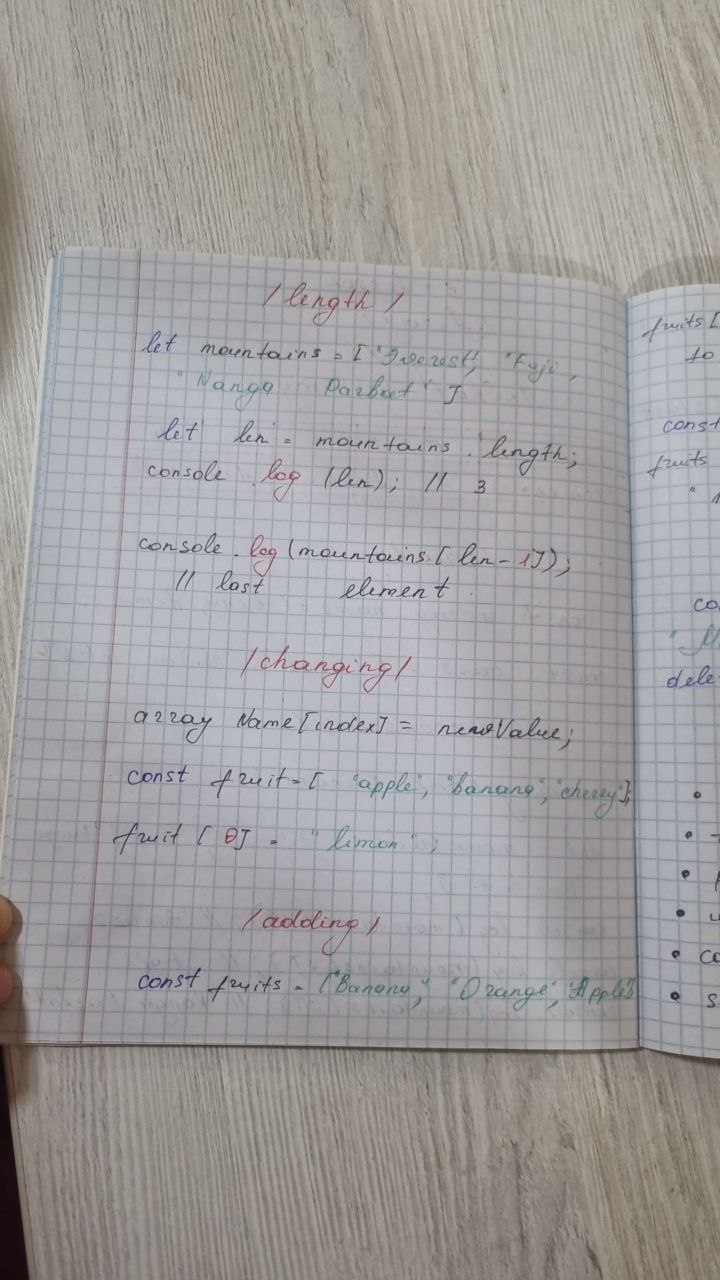 / length /
let mountains = [ "Everest", "Fuji,
"Nanga Parbeet" ]
let len = mountains . length;
console . log (len); // 3
console . log (mountains [ len - 1]);
// last element
/ changing /
array Name [index] = newValue;
const fruit = [ "apple", "banana", "cherry"];
fruit [ 0] = "limon" ;
/ adding /
const fruits = ["Banana", "Orange", "Apple"
fruits [
to
const
fruits
co
dele